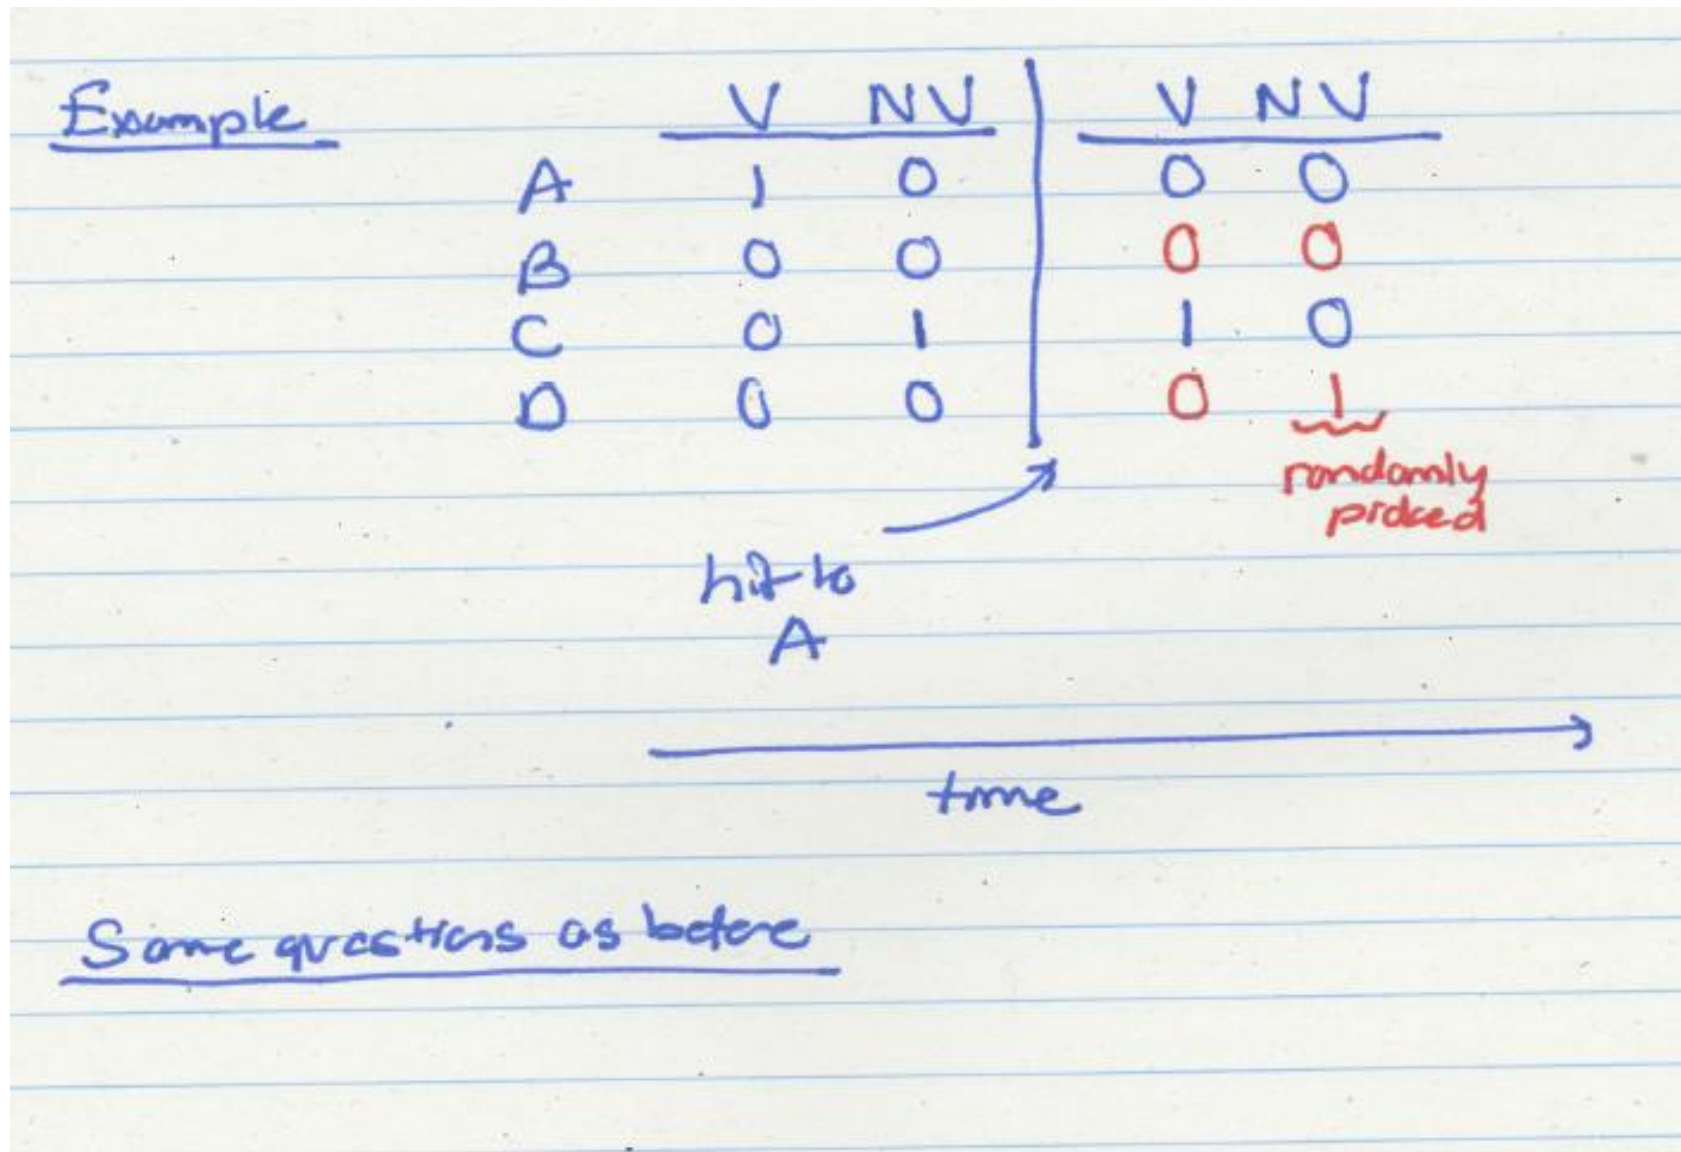 Example V NV V NV
A 1 0 0 0
B 0 0 0 0
C 0 1 1 0
D 0 0 0 1
randomly
picked
hit to
A
time
Same questions as before